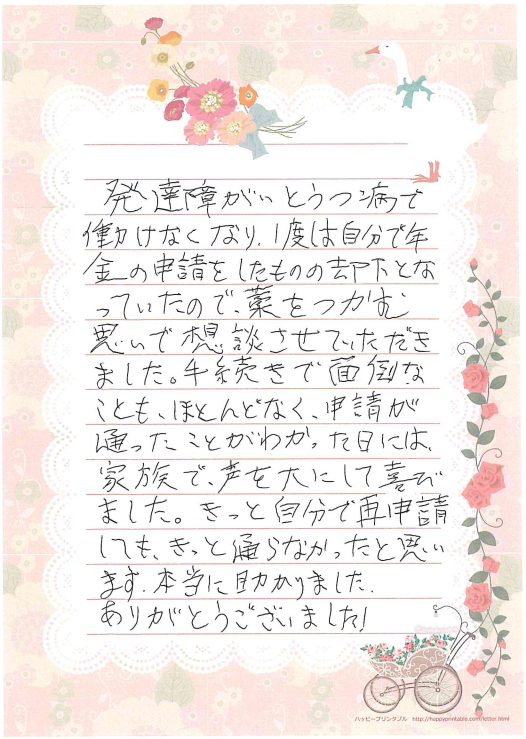 発達障がいとうつ病で
働けなくなり、1度は自分で年
金の申請をしたものの却下とな
っていたので、藁をつかむ
思いで想談させていただき
ました。手続きで面倒な
ことも、ほとんどなく、申請が
通ったことがわかった日には、
家族で、声を大にして喜び
ました。きっと自分で再申請
しても、きっと通らなかったと思い
ます。本当に助かりました。
ありがとうございました!
ハッピープリンタブル http://happyprintable.com/letter.html